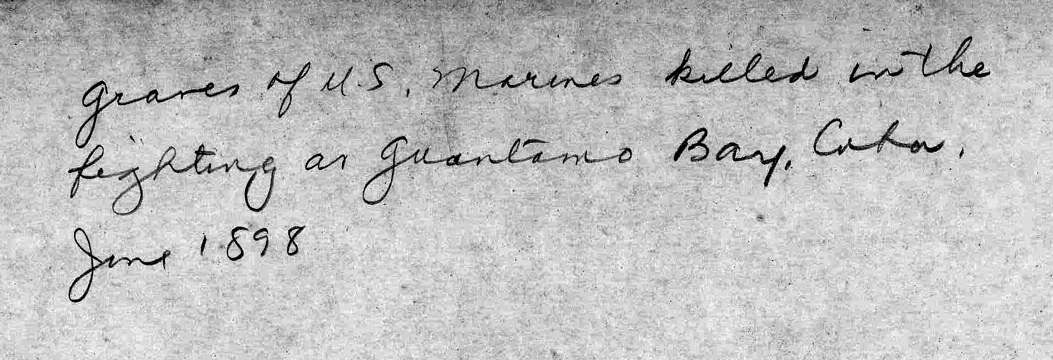 Graves of U.S. Marines killed in the
fighting at Guantamo Bay, Cuba.
June 1898